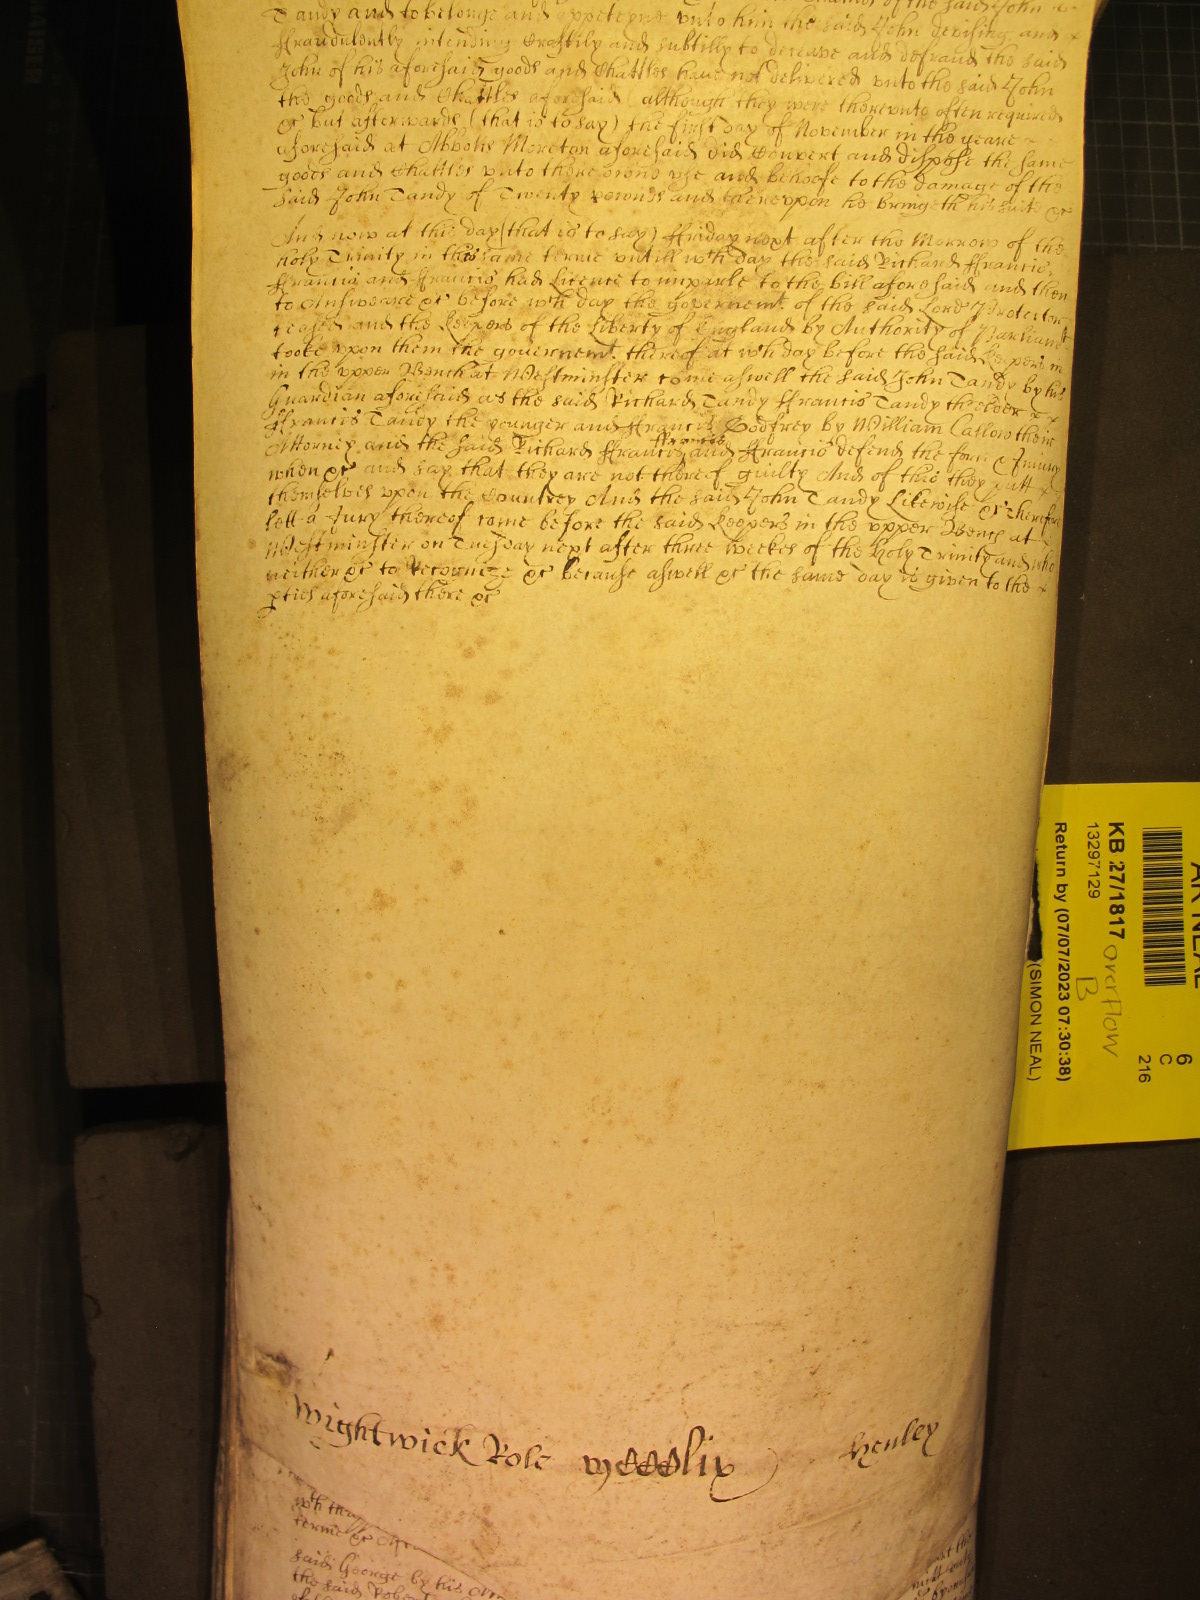 Chattles of the said John
Tandy and to belonge and apperteyne unto him the said John devising and
ffraudulently intending Craftily and subtilly to deceave and defraud the said
John of his aforesaid goods and Chattles have not delivered unto the said John
the goods and Chattles aforesaid (although they were thereunto often required
&c But afterwards (that is to say) the first day of November in the yeare
aforesaid at Abbotts Moreton aforesaid did Convert and dispose the same
goods and Chattles unto there owne use and behoofe to the damage of the
said John Tandy of Twenty pounds and thereuppon he bringeth his suite &c
And now at this day (that is to say) ffriday next after the Morrow of the
holy Trinity in this same terme untill wch day the said Richard ffrancis
ffrancis and ffrancis had Licence to imparle to the bill aforesaid and then
to Answeare &c before wch day the governemt. of the said Lord Protector
ceased and the Keepers of the Liberty of England by Authority of Parliamt
tooke upon them the governemt. thereof at wch day before the said Keepers in
the upper Bench at Westminster come aswell the said John Tandy by his
Guardian aforesaid as the said Richard Tandy ffrancis Tandy the elder
ffrancis Tandy the younger and ffrancis Godfrey by William Catlow their
Attorney and the said Richard ffrancis ffrancis and ffrancis defend the force & Iniury
when &c and say that they are not thereof guilty And of this they putt
themselves upon the Countrey And the said John Tandy Likewise &c Therefore
lett a Jury thereof come before the said Keepers in the upper Bench at
Westminster on Tuesday next after three weekes of the holy Trinity and who
neither &c to Recognize &c because aswell &c the same day is given to the
pties aforesaid there &c
Wightwick Role mccclix Henley
wch
terme &c
said George by his
the said Robert
AR NEAL
6
C
216
KB 27/1817 overflow
B
13297129
Return by (07/07/2023 07:30:38)
(SIMON NEAL)